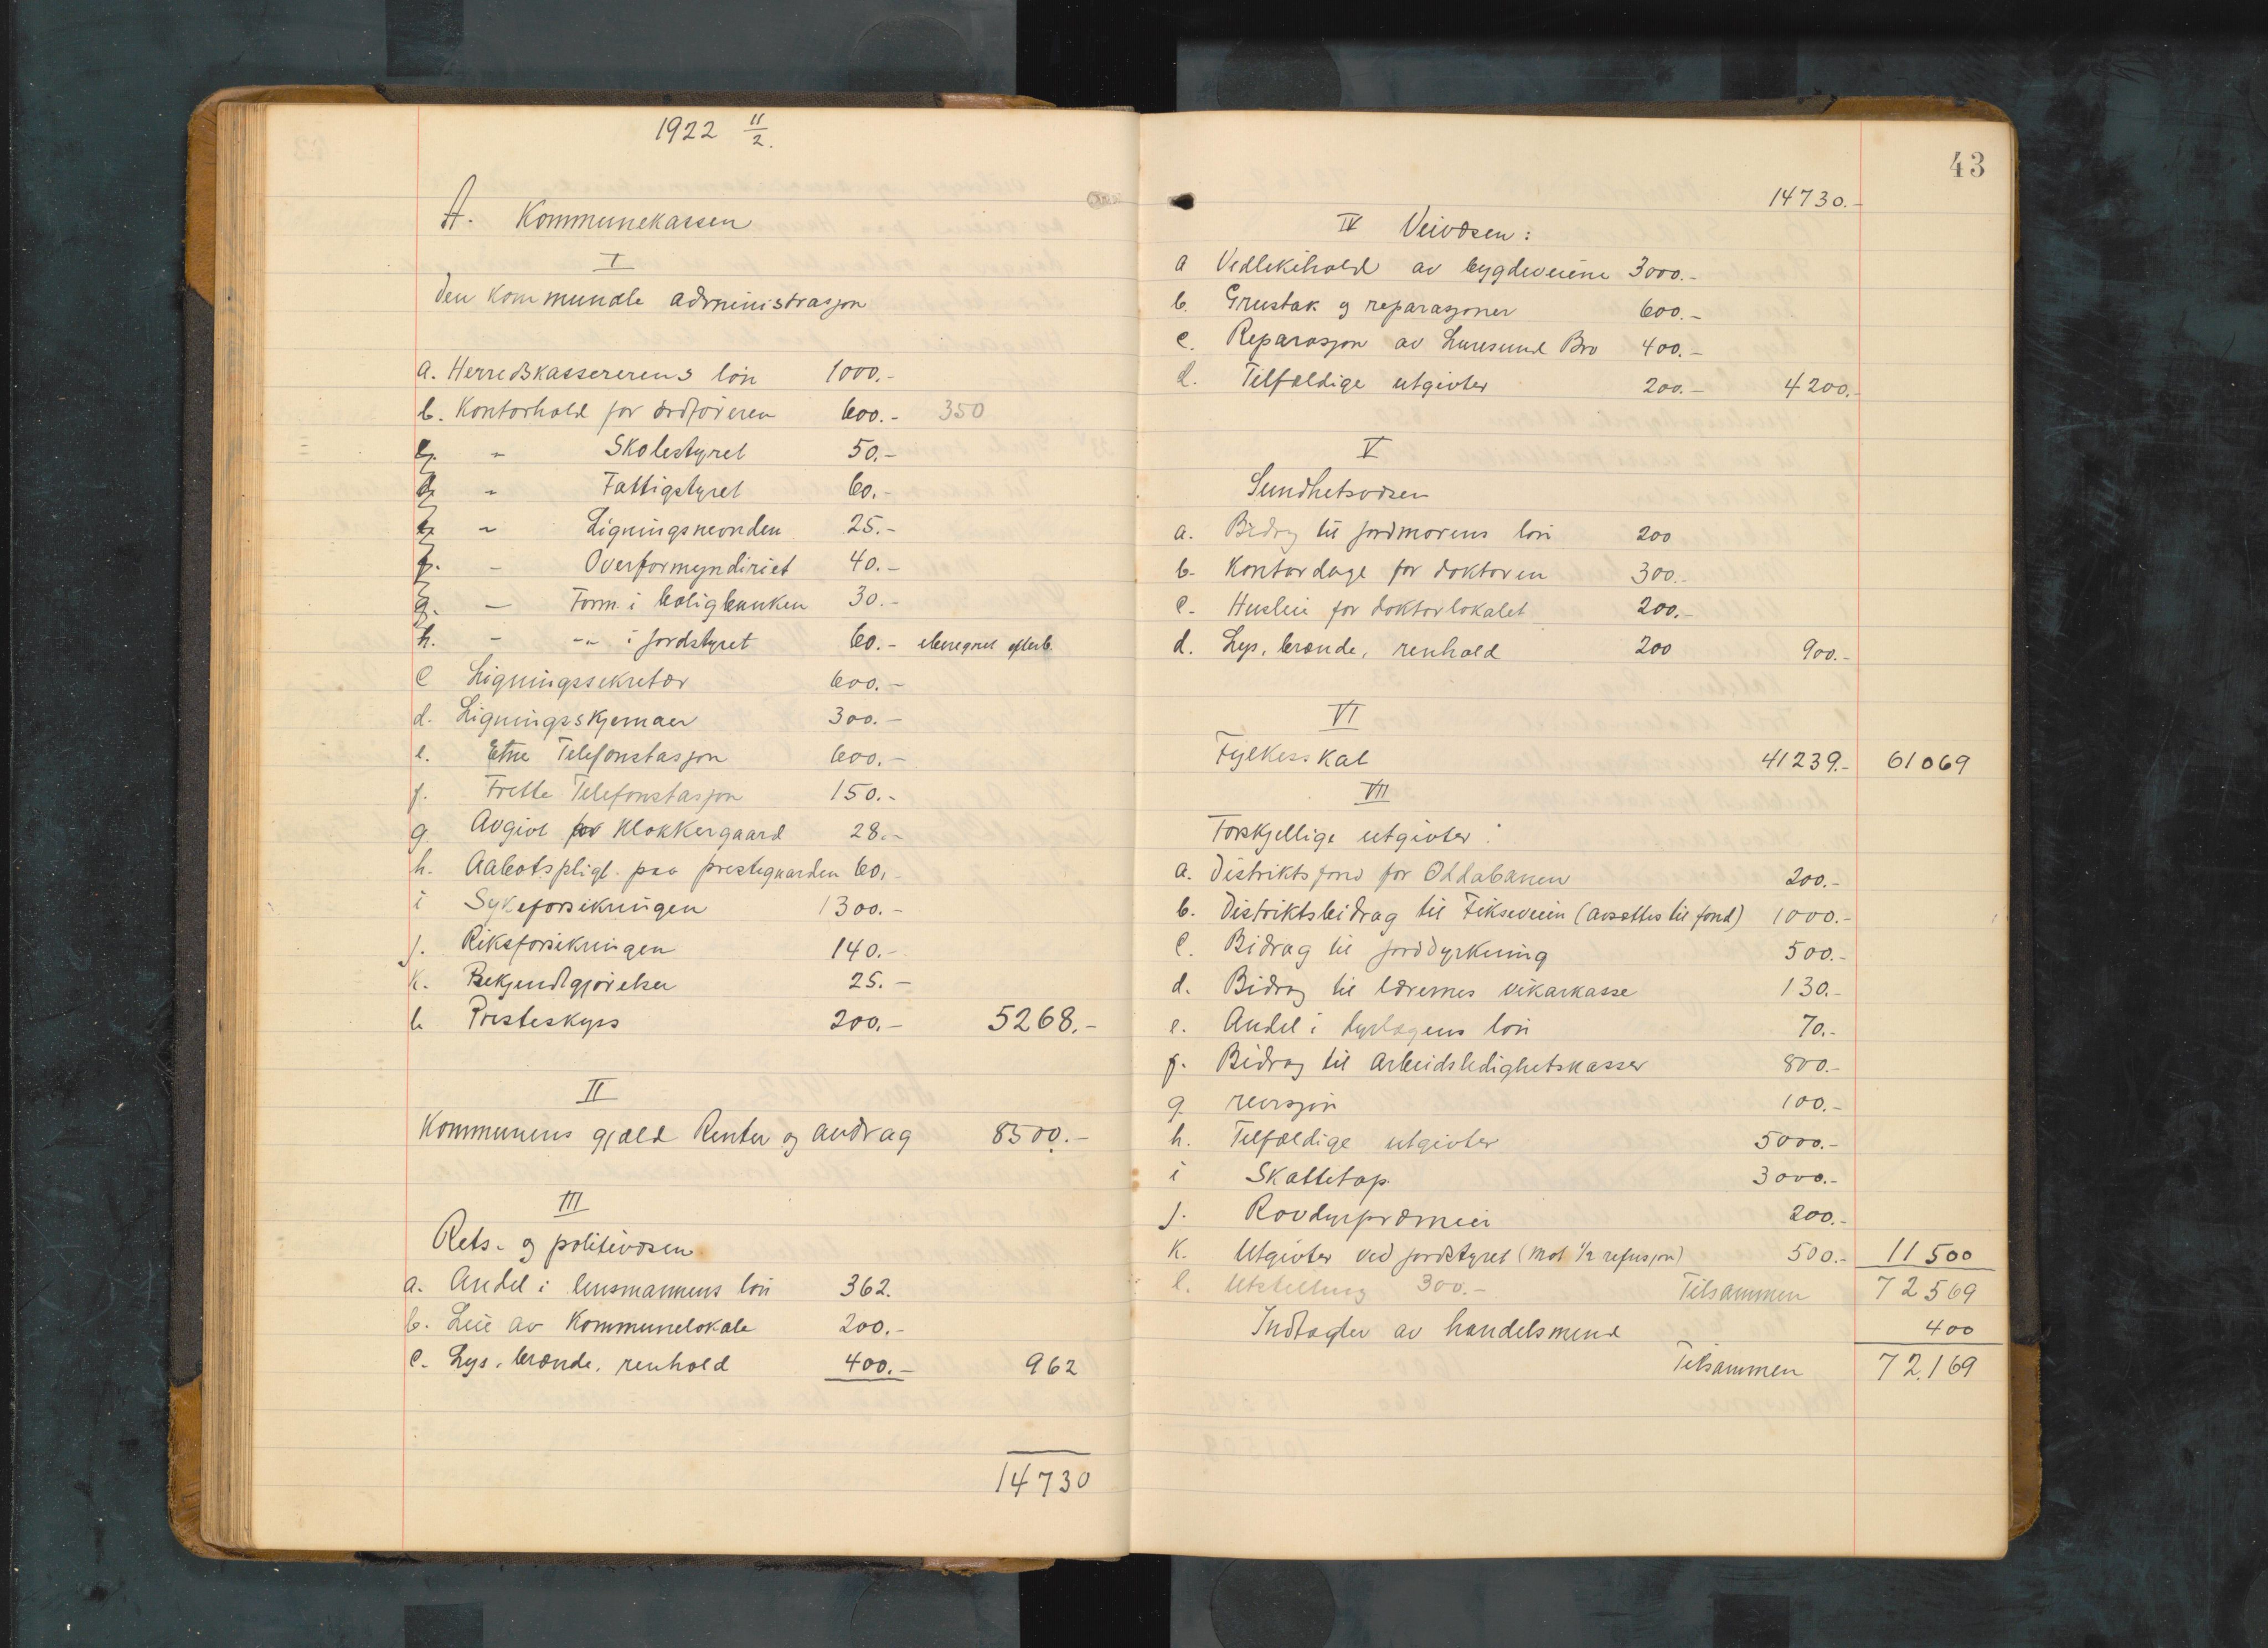 1922 11/2.
A. Kommunekassen
I
Den kommunale administrasjon
a. Herredskassererens løn 1000.-
b. Kontorhold for ordføreren 600.- 350
" Skolestyret 50.-
" Fattigstyret 60.-
" Ligningsnevnden 25.-
f. " Overformynderiet 40.-
g. " Form. i boligbanken 30.-
h. " -"- i jordstyret 60.-
c Ligningssekretær 600.-
d. Ligningsskjemaer 300.-
e. Etne Telefonstasjon 600.-
f. Frette Telefonstasjon 150.-
g Avgivt for Klokkergaard 28.-
h. Aabotspligt paa prestegaarden 60.-
i Sykeforsikringen 1300.-
j. Riksforsikringen 140.-
k. Bekjendtgjørelser 25.-
l. Presteskyss 200.- 5268.-
II
Kommunens gjæld Renter og avdrag 8500.-
III
Rets- og politivæsen
a. Andel i lensmannens løn 362.
b. Leie av Kommunelokale 200.-
c. Lys, brænde, renhold 400.- 962
14730
43
14730.-
IV Veivæsen:
a Vedlikehold av bygdeveiene 3000.-
b. Grustak og reparasjoner 600.-
c. Reparasjon av Luresund Bro 400.-
d. Tilfældige utgivter 200.- 4200.-
V
Sundhetsvæsen
a. Bidrag til jordmorens løn 200
b. Kontordage for doktoren 300.-
c. Husleie for doktorlokalet 200.-
d. Lys, brænde, renhold 200 900.-
VI
Fylkesskat 41239.- 61069
VII
Forskjellige utgivter:
a. Distriktsfond for Oddabanen 200.-
b. Distriktsbidrag til Fikseveien (avsættes til fond) 1000.-
c. Bidrag til jorddyrkning 500.-
d. Bidrag til lærernes vikarkasse 130.-
e. Andel i dyrlægens løn 70.-
f. Bidrag til arbeidsledighetskasser 800.-
g revisjon 100.-
h. Tilfældige utgivter 5000.-
i Skattetap 3000.-
j. Rovdyrpræmier 200.-
k. Utgivter ved jordstyret (mot 1/2 refusjon) 500.- 11500
l. Utstilling 300.- Tilsammen 72569
Indtægter av handelsmænd 400
Tilsammen 72.169